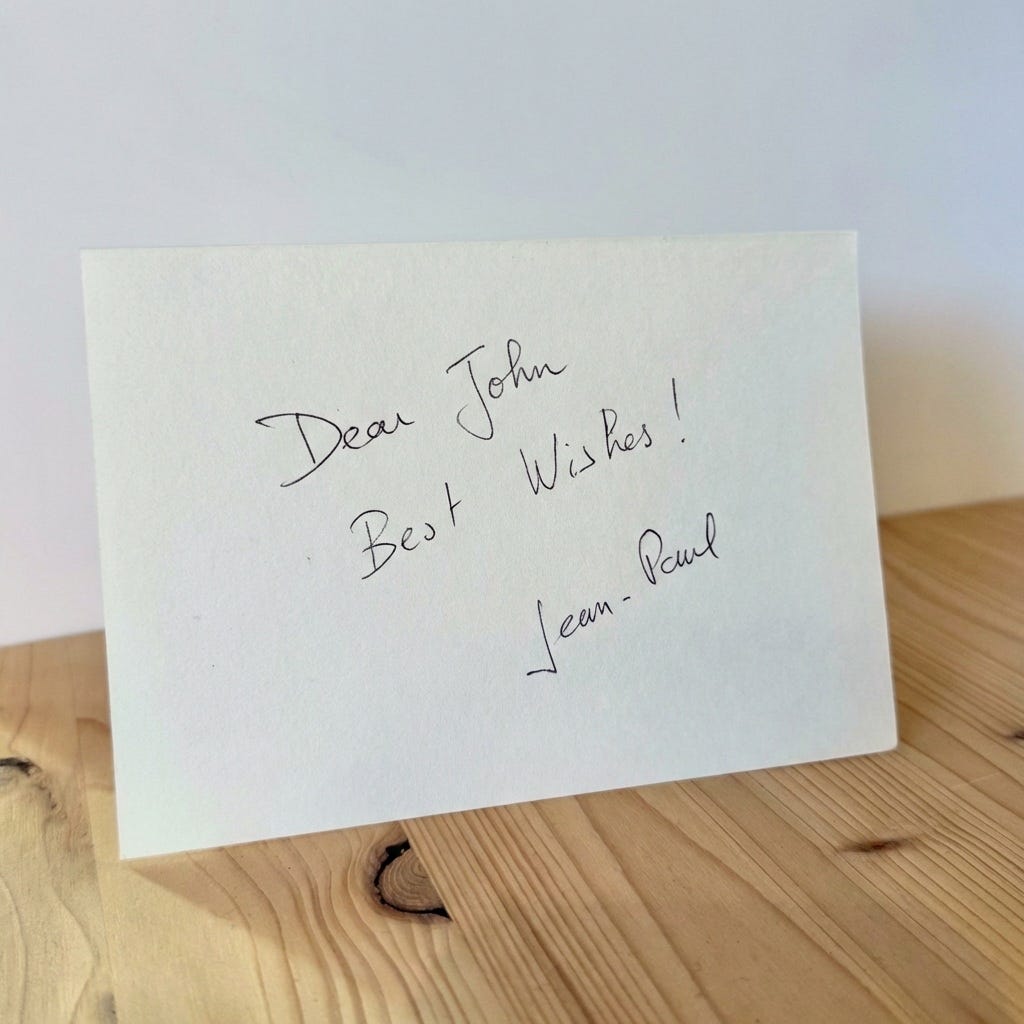 Dear John
Best Wishes!
Jean-Paul